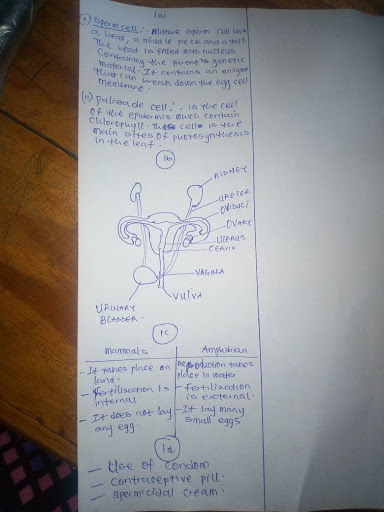 1ai
(i) Sperm cell:- Mature sperm cell has
a head, a middle piece and a tail.
The head is filled with nucleus
Containing the parent's genetic
material. It contains an enzyme
that can break down the egg cell
membrane.
(ii) Palisade cell:- is the cell
of the epidermis which contain
chlorophyll. This cell is the
main sites of photosynthesis
in the leaf.
1b
KIDNEY
URETER
OVIDUCT
OVARY
UTERUS
CERVIX
VAGINA
VULVA
URINARY
BLADDER.
1c
Mammals
- It takes place on
land.
- Fertilisation is
internal
- It does not lay
any egg.
Amphibian
Reproduction takes
place in water
- fertilization
is external.
- It lay many
small eggs
1d
- Use of condom
- contraceptive pill.
- Spermicidal cream.